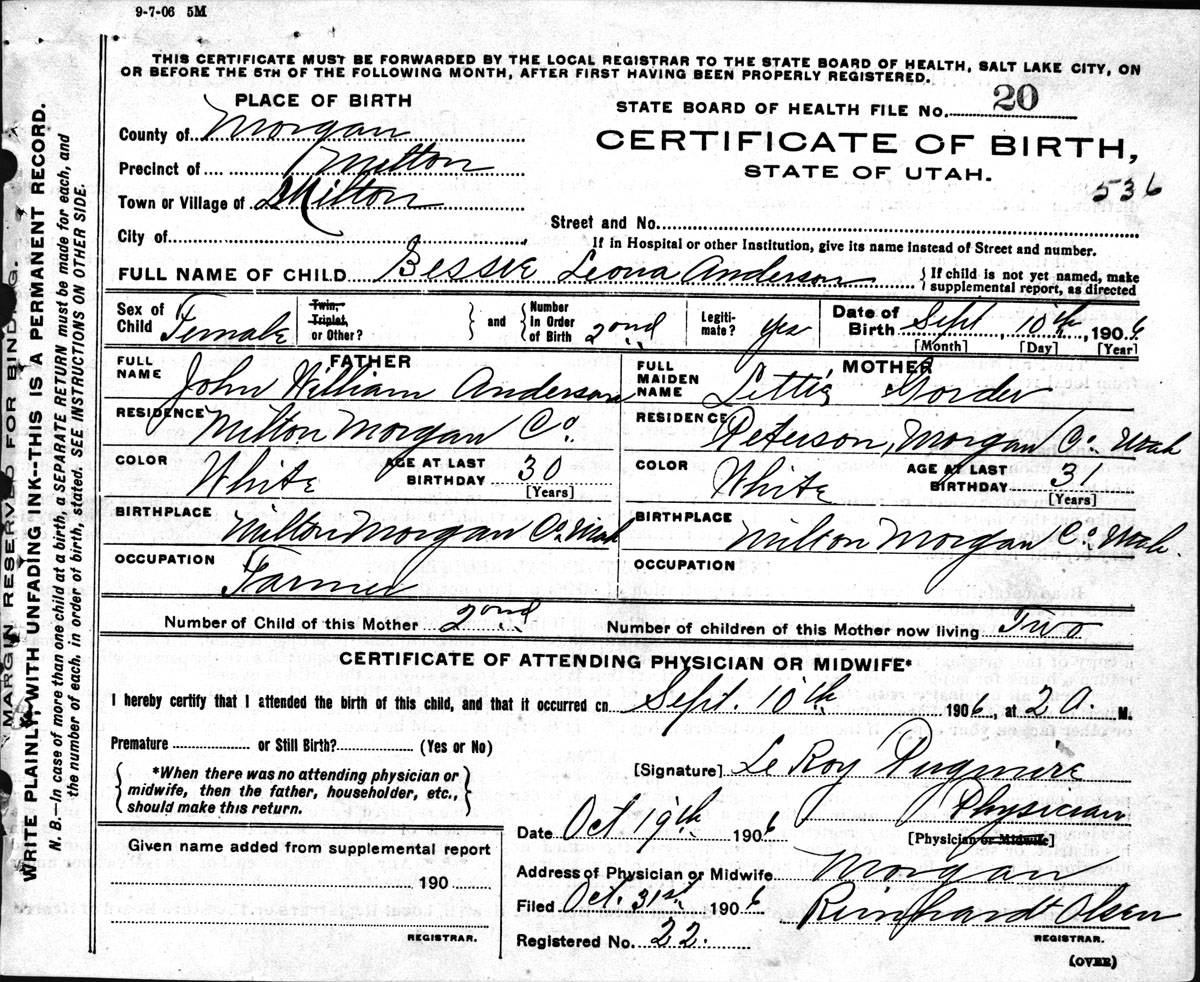 9-7-06 5M
THIS CERTIFICATE MUST BE FORWARDED BY THE LOCAL REGISTRAR TO THE STATE BOARD OF HEALTH, SALT LAKE CITY, ON
OR BEFORE THE 5TH OF THE FOLLOWING MONTH, AFTER FIRST HAVING BEEN PROPERLY REGISTERED.
MARGIN RESERVED FOR BINDING.
WRITE PLAINLY WITH UNFADING INK--THIS IS A PERMANENT RECORD.
N. B.—In case of more than one child at a birth, a SEPARATE RETURN must be made for each, and
the number of each, in order of birth, stated. SEE INSTRUCTIONS ON OTHER SIDE.
PLACE OF BIRTH
STATE BOARD OF HEALTH FILE No. 20
County of Morgan
CERTIFICATE OF BIRTH,
Precinct of Milton
STATE OF UTAH.
536
Town or Village of Milton
Street and No.
City of
If in Hospital or other Institution, give its name instead of Street and number.
FULL NAME OF CHILD Bessie Leona Anderson
{If child is not yet named, make
supplemental report, as directed
Sex of Child Female
Twin, Triplet, or Other?
and
Number in Order of Birth 2nd
Legitimate? yes
Date of Birth Sept 10th, 1906
[Month] [Day] [Year]
FATHER
MOTHER
FULL NAME John William Anderson
FULL MAIDEN NAME Lettie Gorder
RESIDENCE Milton Morgan Co.
RESIDENCE Peterson, Morgan Co. Utah
COLOR White AGE AT LAST BIRTHDAY 30 [Years]
COLOR White AGE AT LAST BIRTHDAY 31 [Years]
BIRTHPLACE Milton Morgan Co. Utah
BIRTHPLACE Milton Morgan Co. Utah.
OCCUPATION Farmer
OCCUPATION
Number of Child of this Mother 2nd
Number of children of this Mother now living Two
CERTIFICATE OF ATTENDING PHYSICIAN OR MIDWIFE*
I hereby certify that I attended the birth of this child, and that it occurred on Sept. 10th 1906, at 2 A. M.
Premature or Still Birth? (Yes or No)
*When there was no attending physician or
midwife, then the father, householder, etc.,
should make this return.
[Signature] Le Roy Pugmire
Physician
[Physician or Midwife]
Date Oct 19th 1906
Given name added from supplemental report
190
REGISTRAR.
Address of Physician or Midwife Morgan
Filed Oct. 31st 1906 Rinhardt Olsen
REGISTRAR.
Registered No. 22.
(OVER)